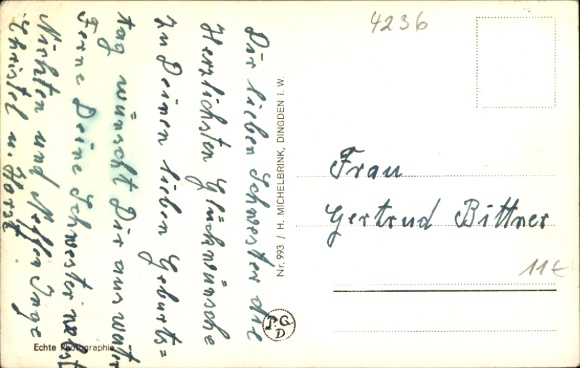 4236
Dir lieben Schwester die
Herzlichsten Glückwünsche
zu Deinen lieben Geburts=
tag wünscht Dir aus weiter
Ferne Deine Schwester nebst
Nichten und Neffen Inge
Christel u. Horst
Echte Photographie
Nr. 993 / H. MICHELBRINK, DINGDEN I. W.
P.G.
D
Frau
Gertrud Bittner
11€